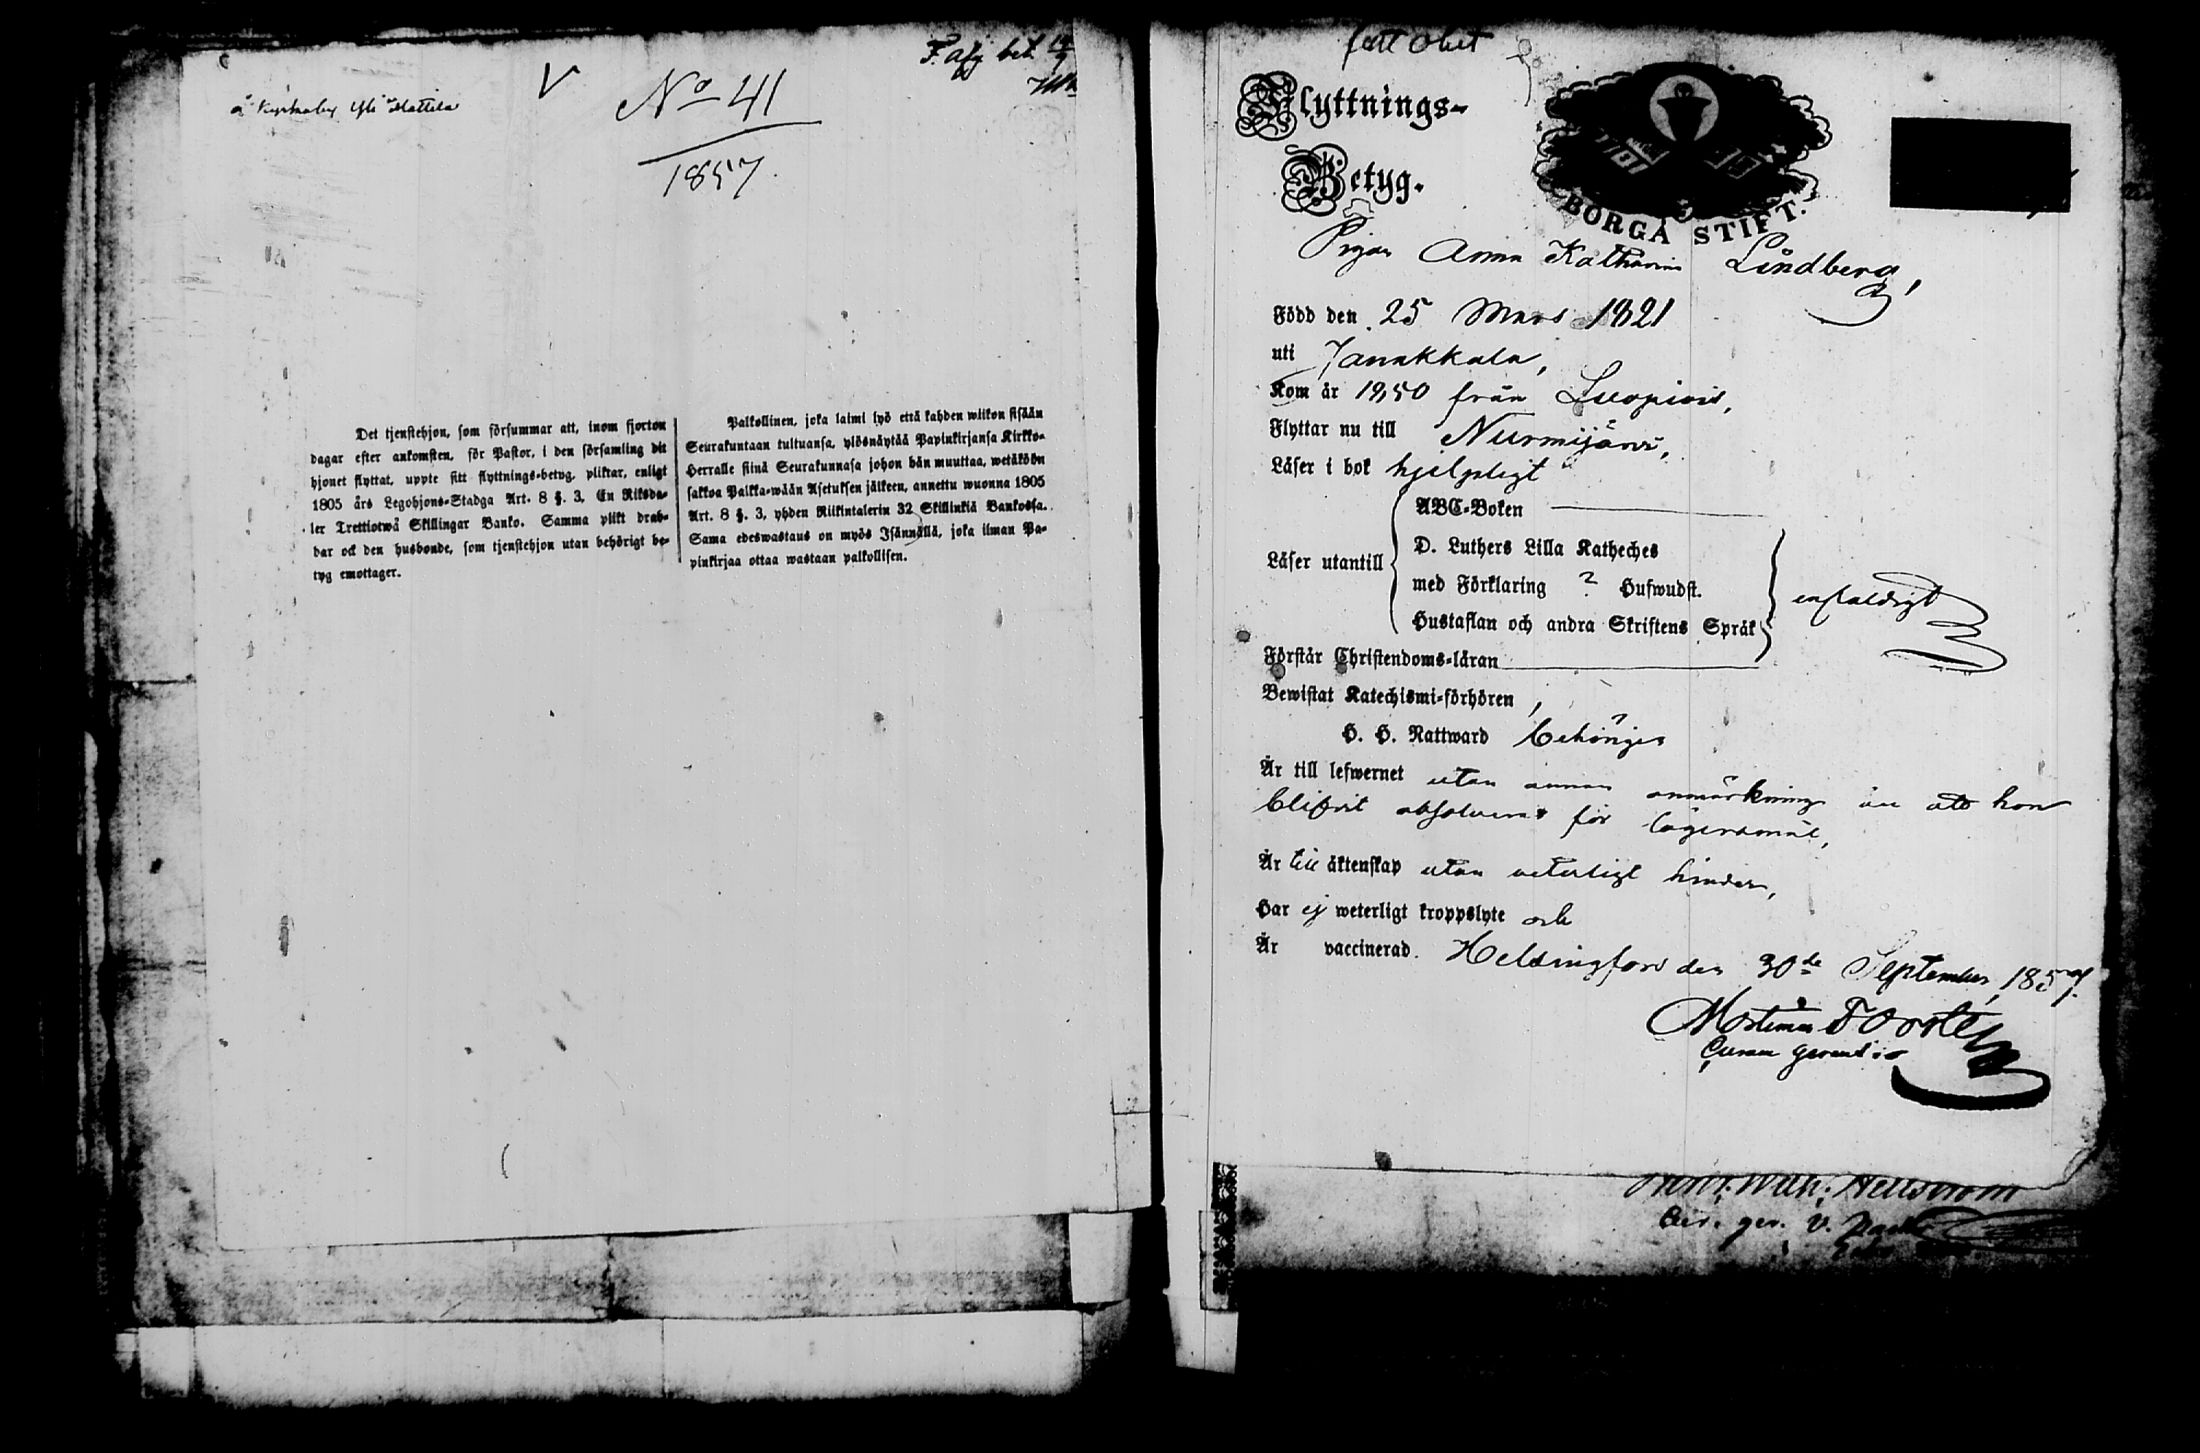 å Kyrkoby
V
No 41
1857.
Det tjenstehjon, som försummar att, inom fjorton
dagar efter ankomsten, för Pastor, i den församling dit
hjonet flyttat, uppte sitt flyttnings-betyg, pliktar, enligt
1805 års Legohjons-Stadga Art. 8 §. 3. En Riksda-
ler Trettiotwå Skillingar Banko. Samma plikt drab-
bar ock den husbonde, som tjenstehjon utan behörigt be-
tyg emottager.
Palkollinen, joka laimi lyö että kahden wiikon sisään
Seurakuntaan tultuansa, ylösnäytää Papinkirjansa Kirkko-
Herralle siinä Seurakunnasa johon hän muuttaa, wetäköön
sakkoa Palkka-wään Asetuksen jälkeen, annettu wuonna 1805
Art. 8 §. 3, yhden Riikintalerin 32 Skillinkiä Bankossa.
Sama edeswastaus on myös Isännällä, joka ilman Pa-
pinkirjaa ottaa wastaan palkollisen.
Flyttnings-
Betyg.
BORGÅ STIFT.
Pigan Anna Katharina Lindberg,
Född den 25 Mars 1821
uti Janakkala,
Kom år 1850 från Luopiois,
Flyttar nu till Nurmijärvi,
Läser i bok hjelpligt
ABC-Boken
Läser utantill
D. Luthers Lilla Katheches
med Förklaring ? Hufwudst.
Hustaflan och andra Skriftens Språk
enfaldigt
Förstår Christendoms-läran
Bewistat Katechismi-förhören,
H. H. Nattward behörigen
Är till lefwernet utan annan anmärkning än att hon
blifvit absolverad för lägersmål,
Är till äktenskap utan veterligt hinder,
Har ej weterligt kroppslyte och
Är vaccinerad. Helsingfors den 30de September 1857.
Curam gerens
Wilh. Hellström